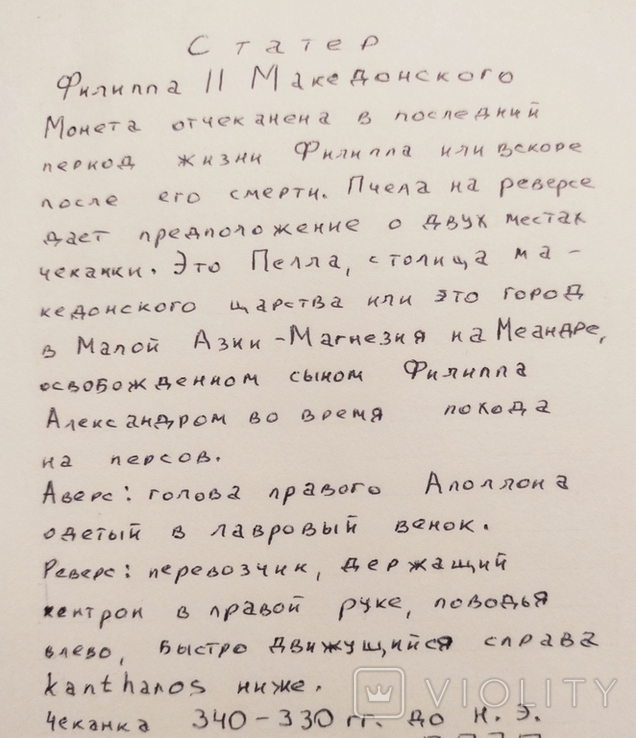 Статер
Филиппа II Македонского
Монета отчеканена в последний
период жизни Филиппа или вскоре
после его смерти. Пчела на реверсе
дает предположение о двух местах
чеканки. Это Пелла, столица ма-
кедонского царства или это город
в Малой Азии - Магнезия на Меандре,
освобожденном сыном Филиппа
Александром во время похода
на персов.
Аверс: голова правого Аполлона
одетый в лавровый венок.
Реверс: перевозчик, держащий
кентрон в правой руке, поводья
влево, быстро движущийся справа
kantharos ниже.
Чеканка 340-330 гг. до н. э.
VIOLITY